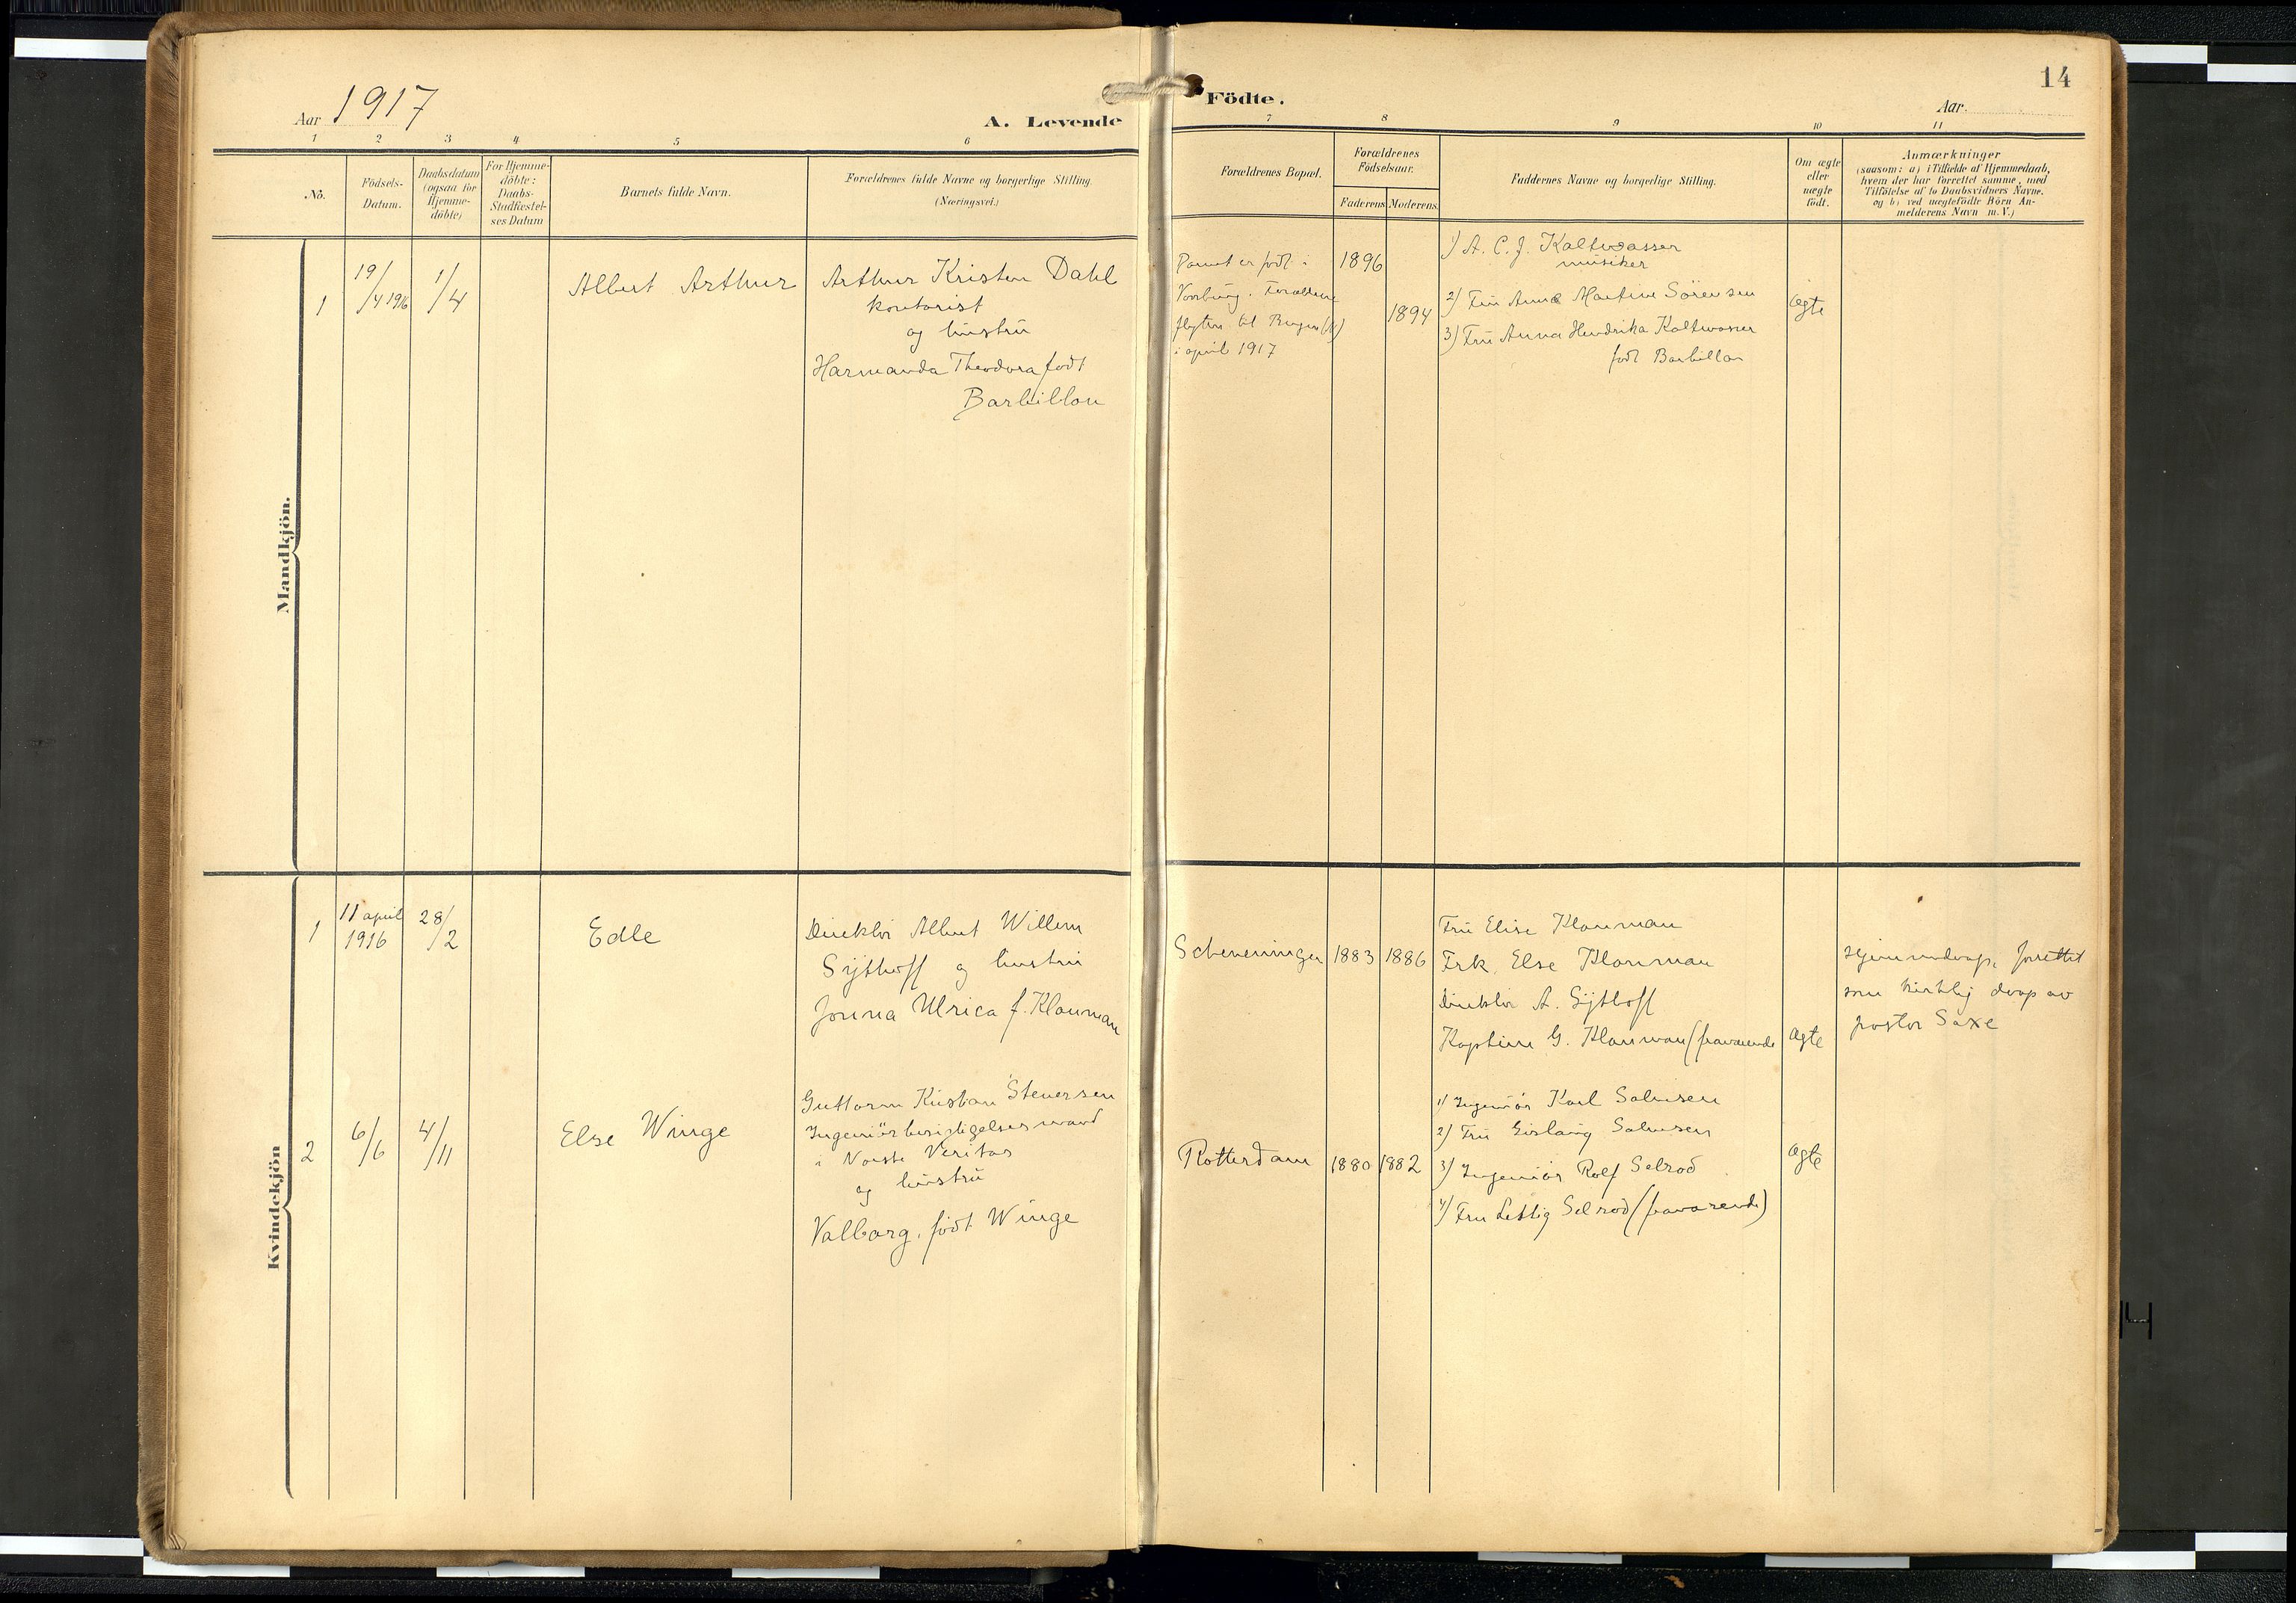 Aar 1917
A. Levende
Födte.
14
Aar
1
2
3
4
5
6
7
8
9
10
11
No.
Födsels-
Datum.
Daabsdatum
(ogsaa for
Hjemme-
döbte)
For Hjemme-
döbte:
Daabs-
Stadfæstel-
ses Datum
Barnets fulde Navn.
Forældrenes fulde Navne og borgerlige Stilling.
(Næringsvei.)
Forældrenes Bopæl.
Forældrenes
Födselsaar.
Faderens
Moderens.
Faddernes Navne og borgerlige Stilling.
Om ægte
eller
uægte
födt.
Anmærkninger
(saasom: a) i Tilfælde af Hjemmedaab,
hvem der har forrettet samme, med
Tilföielse af to Daabsvidners Navne.
og b) ved uægtefödte Börn An-
melderens Navn m. V.)
Mandkjön.
1
19/4 1916
1/4
Albert Arthur
Arthur Kristen Dahl
kontorist
og hustru
Harmanda Theodora født
Barbillon
Barnet er født i
Voorburg. Forældrene
flytten til Bergen (N)
i april 1917
1896
1894
1) A. C. J. Kaltwasser
musiker
2) Fru Anna Martine Sörensen
3) Fru Anna Hendrika Kaltwasser
født Barbillon
ægte
Kvindekjön
1
11 april
1916
28/2
Edle
Direktör Albert Willem
Sijthoff og hustru
Jonna Ulrica f. Klouman
Scheveningen
1883
1886
Fru Elise Klouman
Frk. Else Klouman
Direktör A. Sijthoff
Kaptein G. Klouman (fraværende
ægte
Hjemmedaap, forrettet
som kirkelig daap av
pastor Saxe
2
6/6
4/11
Else Winge
Guttorm Kristian Stenersen
Ingeniör besigtigelsesmand
i Norske Veritas
og hustru
Valborg, født Winge
Rotterdam
1880
1882
1) Ingeniör Karl Salvesen
2) Fru Gislaug Salvesen
3) Ingeniör Rolf Selrod
4) Fru Selrod (fraværende)
ægte
14